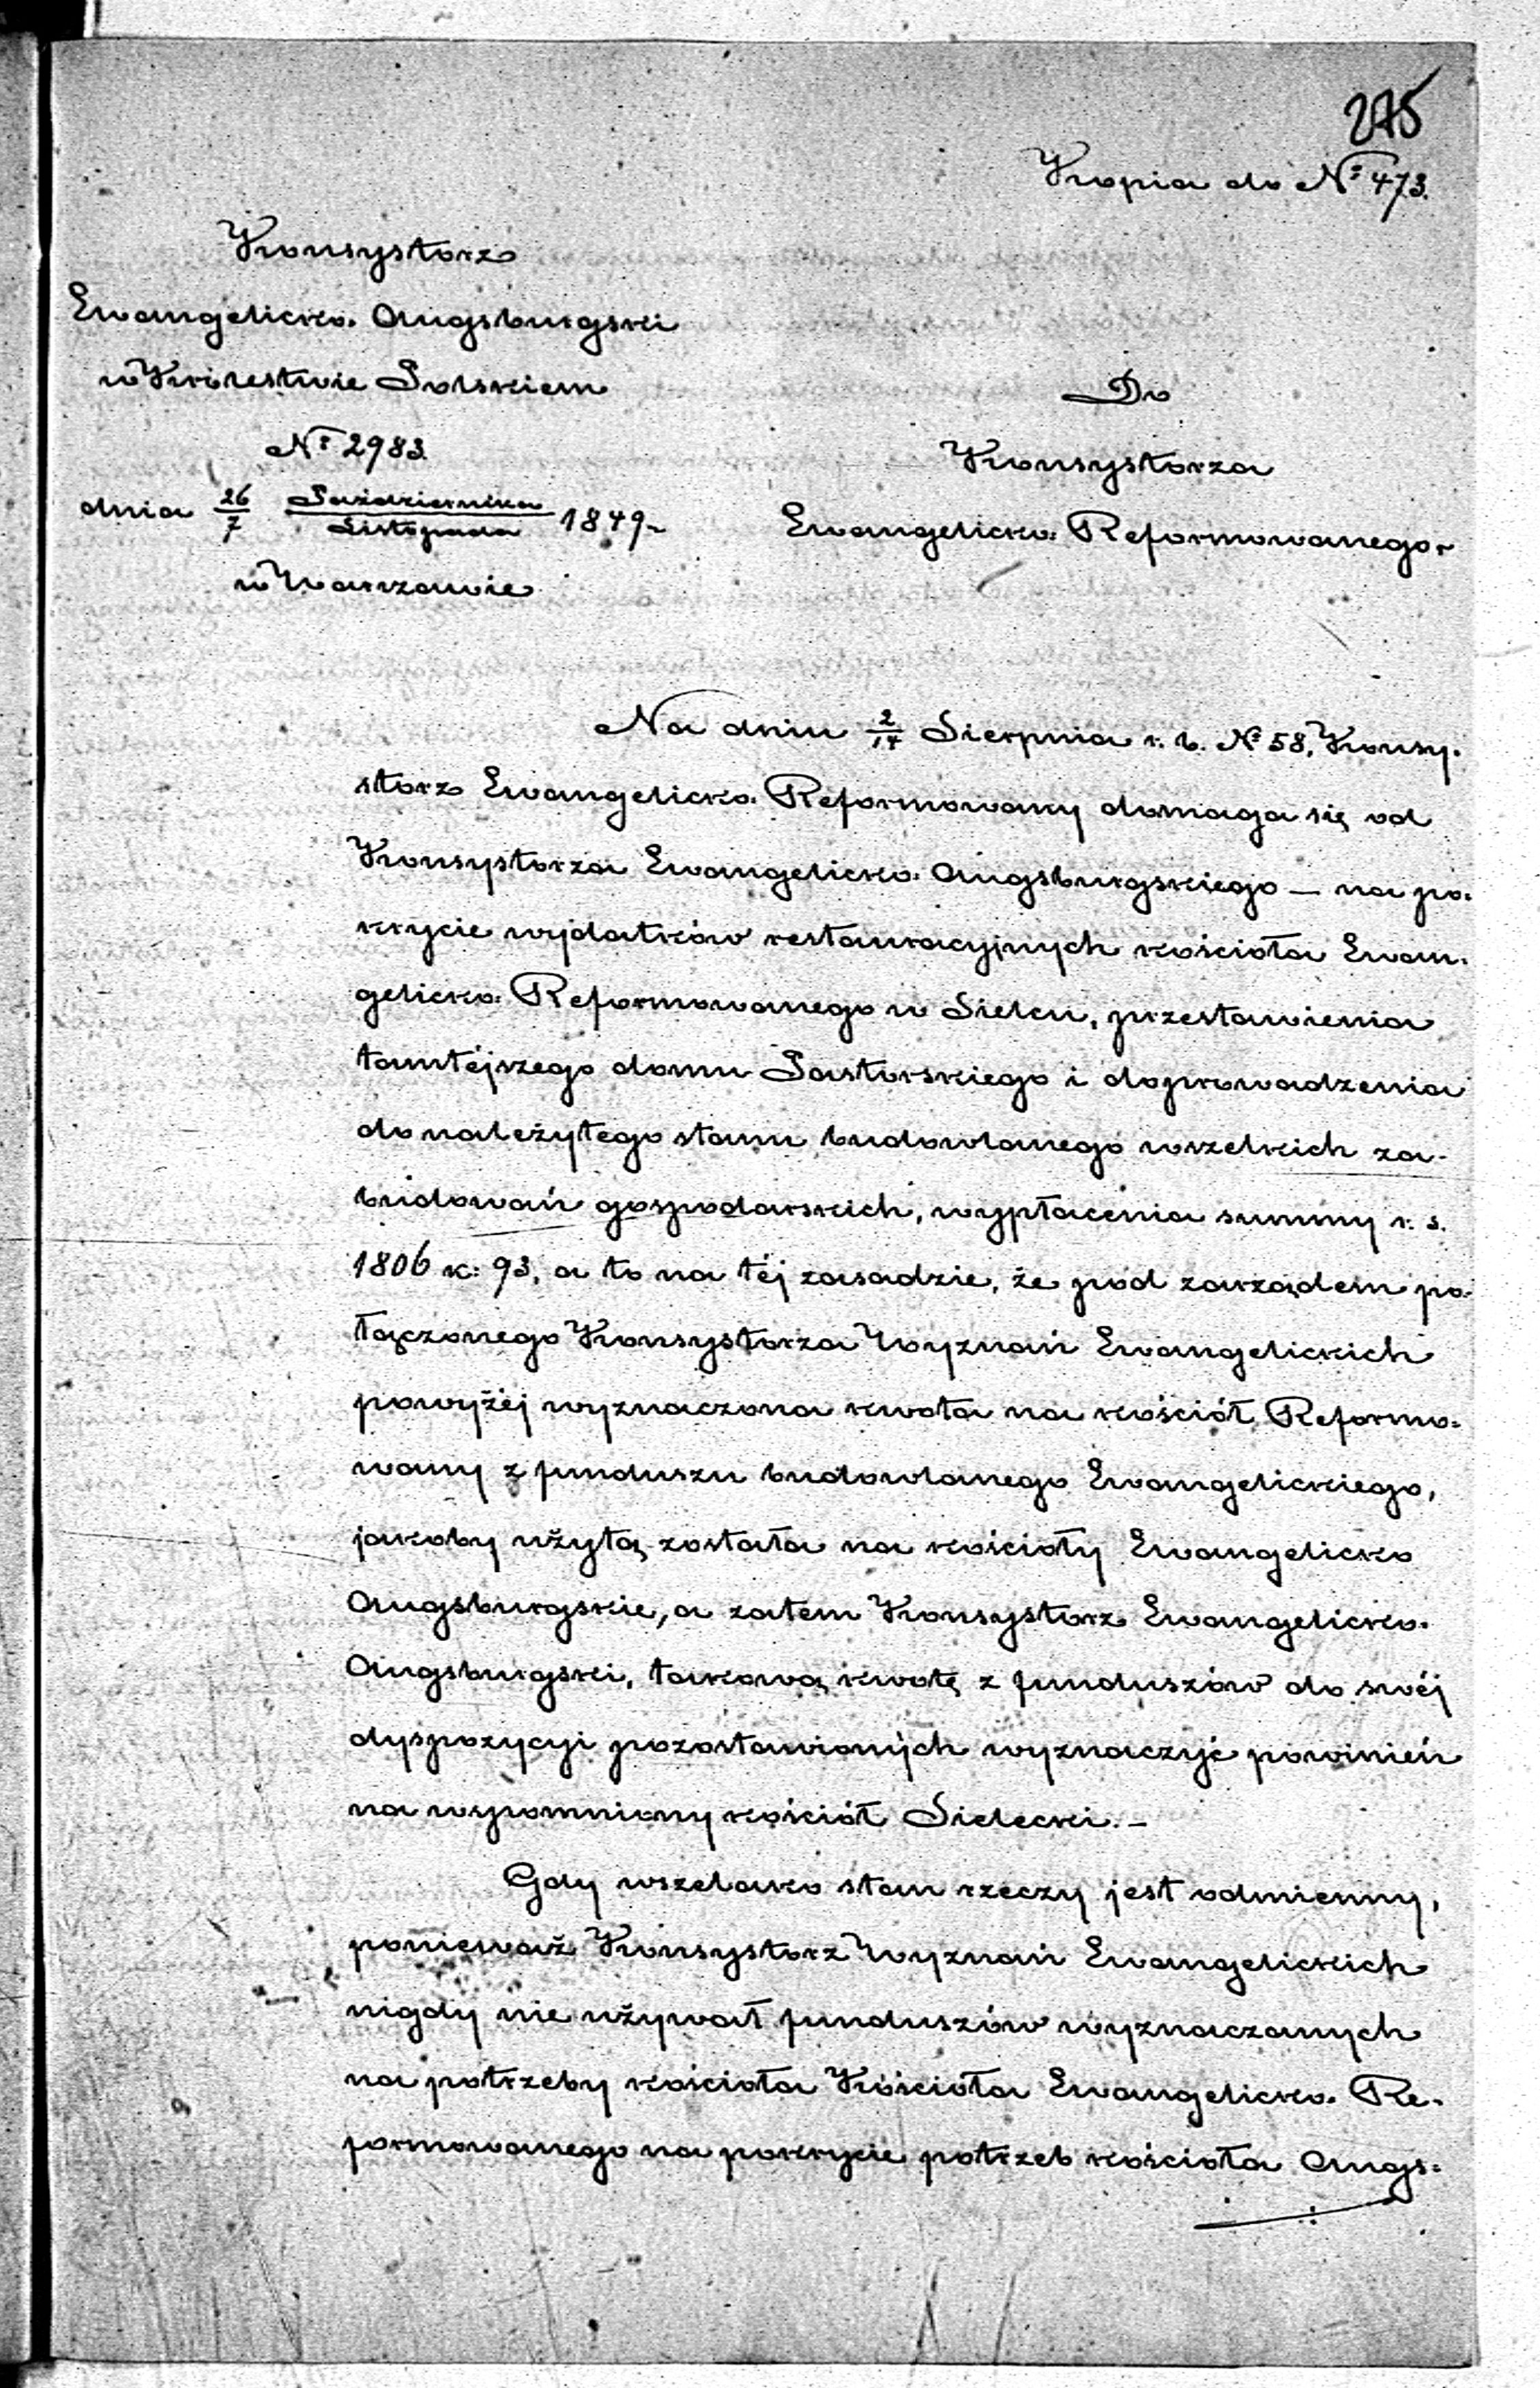 275
Kopia do № 473.
Konsystorz
Ewangelicko. Augsburgski
w Królestwie Polskiem
№ 2983.
dnia 26/7 Października/Listopada 1849
w Warszawie
Do
Konsystorza
Ewangelicko. Reformowanego.
Na dniu 2/14 Sierpnia r. b. № 58, Konsy-
storz Ewangelicko. Reformowany domaga się od
Konsystorza Ewangelicko. Augsburgskiego — na po-
krycie wydatków restauracyjnych kościoła Ewan-
gelicko. Reformowanego w Sielcu, przestawienia
tamtéjszego domu Pastorskiego i doprowadzenia
do należytego stanu budowlanego wszelkich za-
budowań gospodarskich, wypłacenia summy r. s.
1806 k: 93, a to na téj zasadzie, że pod zarządem po-
łączonego Konsystorza Wyznań Ewangelickich
powyżéj wyznaczona kwota na kościół Reformo-
wany z funduszu budowlanego Ewangelickiego,
jakoby użytą została na kościoły Ewangelicko
Augsburgskie, a zatem Konsystorz Ewangelicko.
Augsburgski, takową kwotę z funduszów do swéj
dyspozycyi pozostawionych wyznaczyć powinien
na wspomniony kościół Sielecki. –
Gdy wszelako stan rzeczy jest odmienny,
ponieważ Konsystorz Wyznań Ewangelickich
nigdy nie używał funduszów wyznaczanych
na potrzeby kościoła Kościoła Ewangelicko. Re-
formowanego na pokrycie potrzeb kościoła Augs-